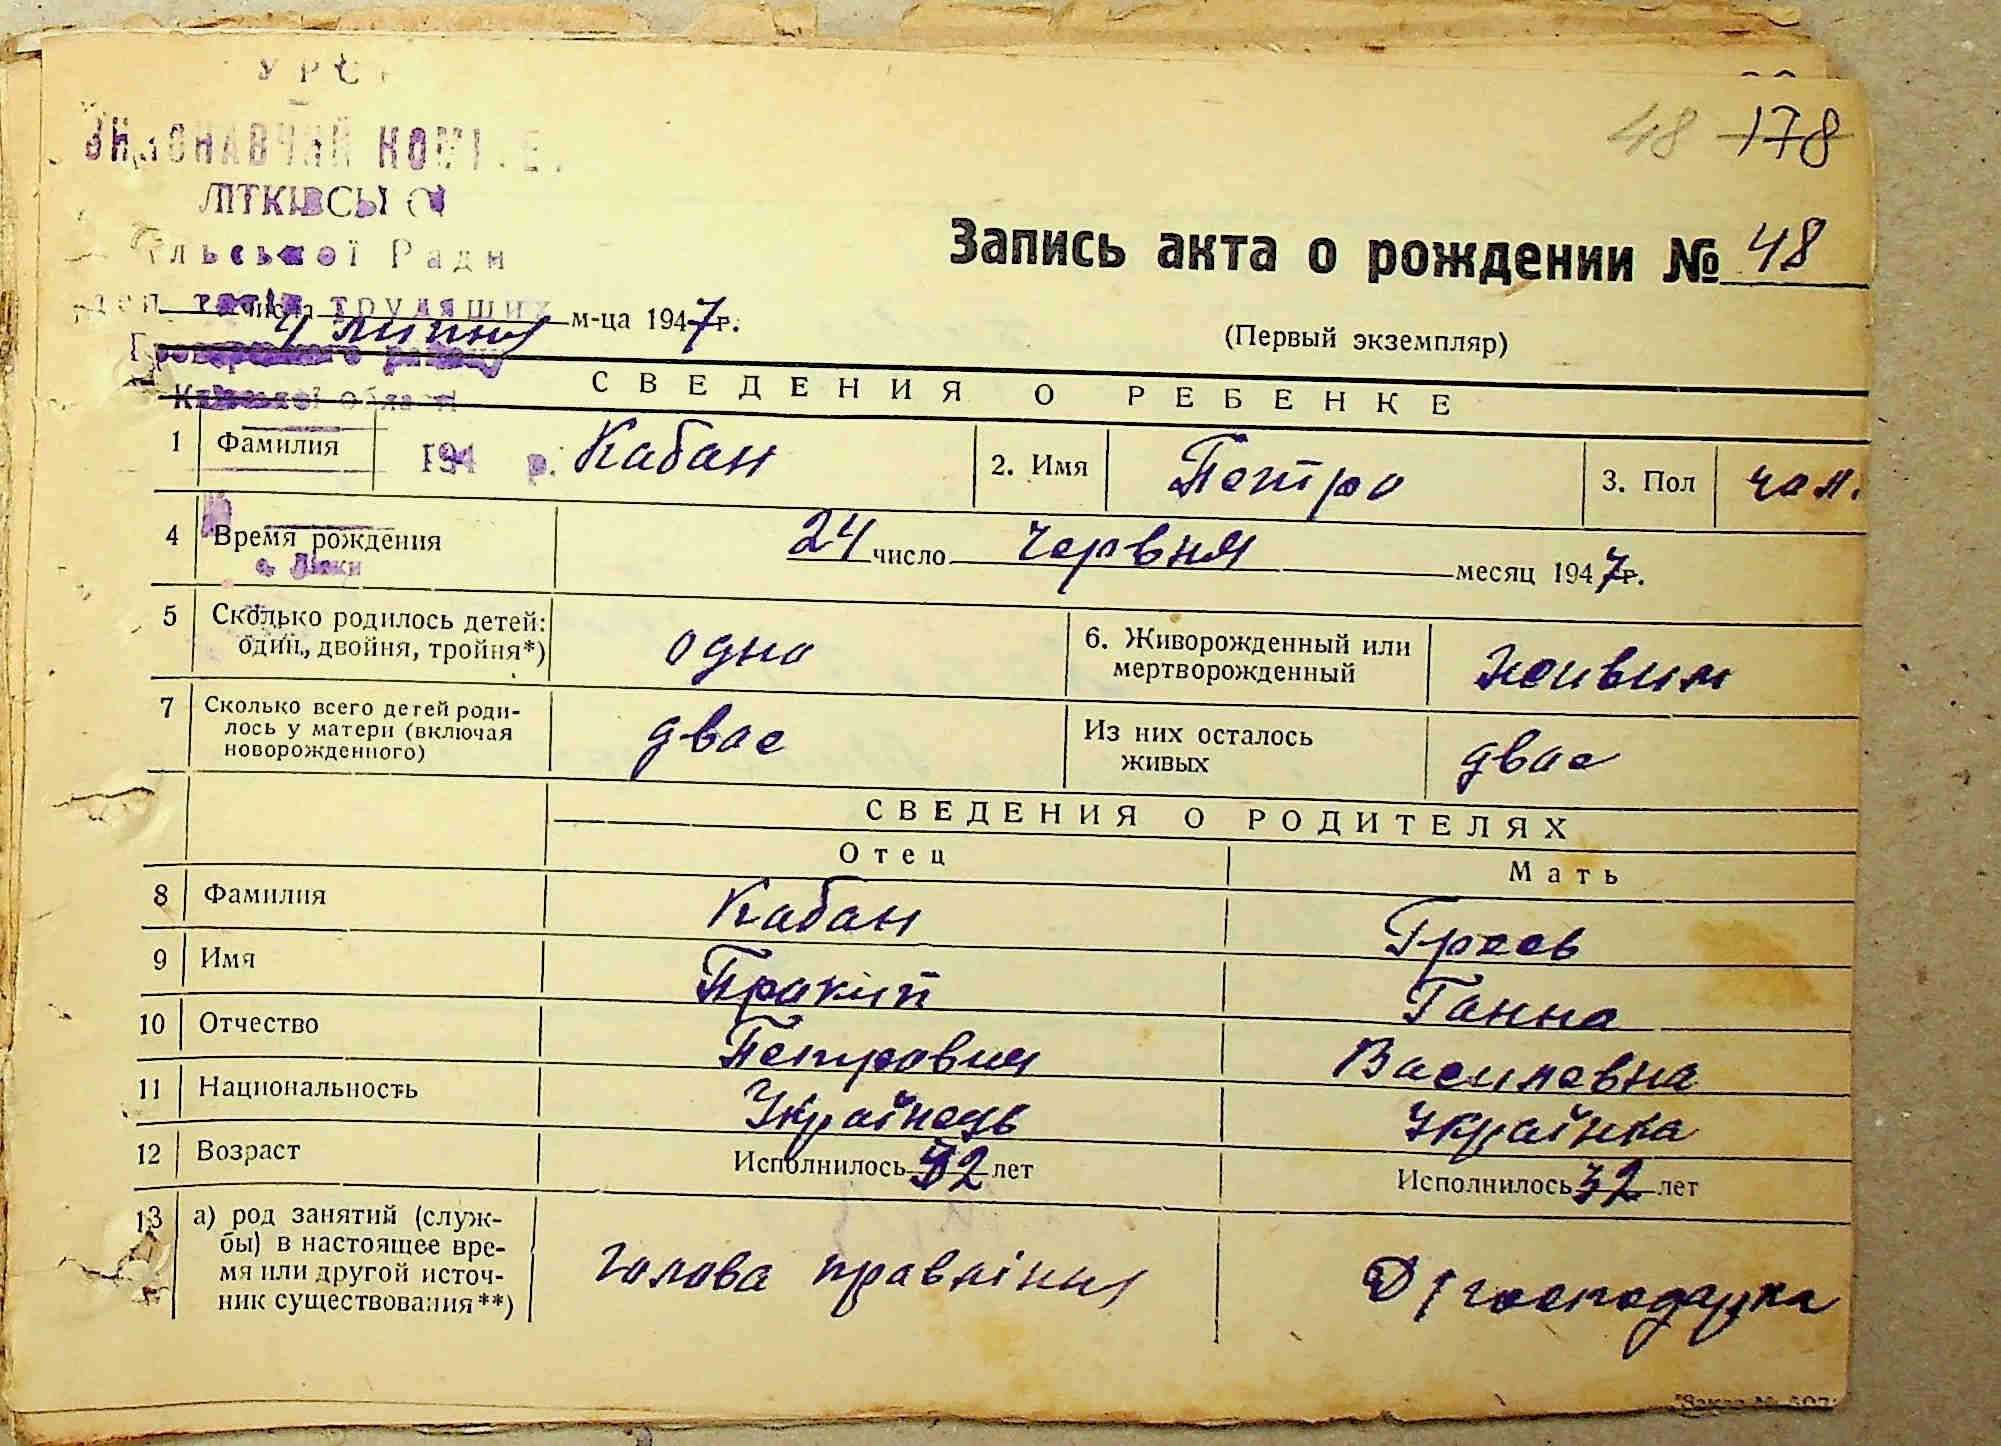 УРСР
ВИКОНАВЧИЙ КОМІТЕТ
ЛІТКІВСЬКОЇ
сільської Ради
деп. трудящих
Броварського району
Київської області
194 р.
с. Літки
48 178
Запись акта о рождении № 48
(Первый экземпляр)
числа 4 липня м-ца 1947 г.
СВЕДЕНИЯ О РЕБЕНКЕ
1 Фамилия Кабан 2. Имя Петро 3. Пол чол.
4 Время рождения 24 число червня месяц 1947 г.
5 Сколько родилось детей: один, двойня, тройня*) одно 6. Живорожденный или мертворожденный живим
7 Сколько всего детей роди-
лось у матери (включая
новорожденного) двое Из них осталось живых двое
СВЕДЕНИЯ О РОДИТЕЛЯХ
Отец Мать
8 Фамилия Кабан
9 Имя Прокип Ганна
10 Отчество Петрович Василевна
11 Национальность Українець Українка
12 Возраст Исполнилось лет Исполнилось 32 лет
13 а) род занятий (служ-
бы) в настоящее вре-
мя или другой источ-
ник существования**) голова правління Д/господарка